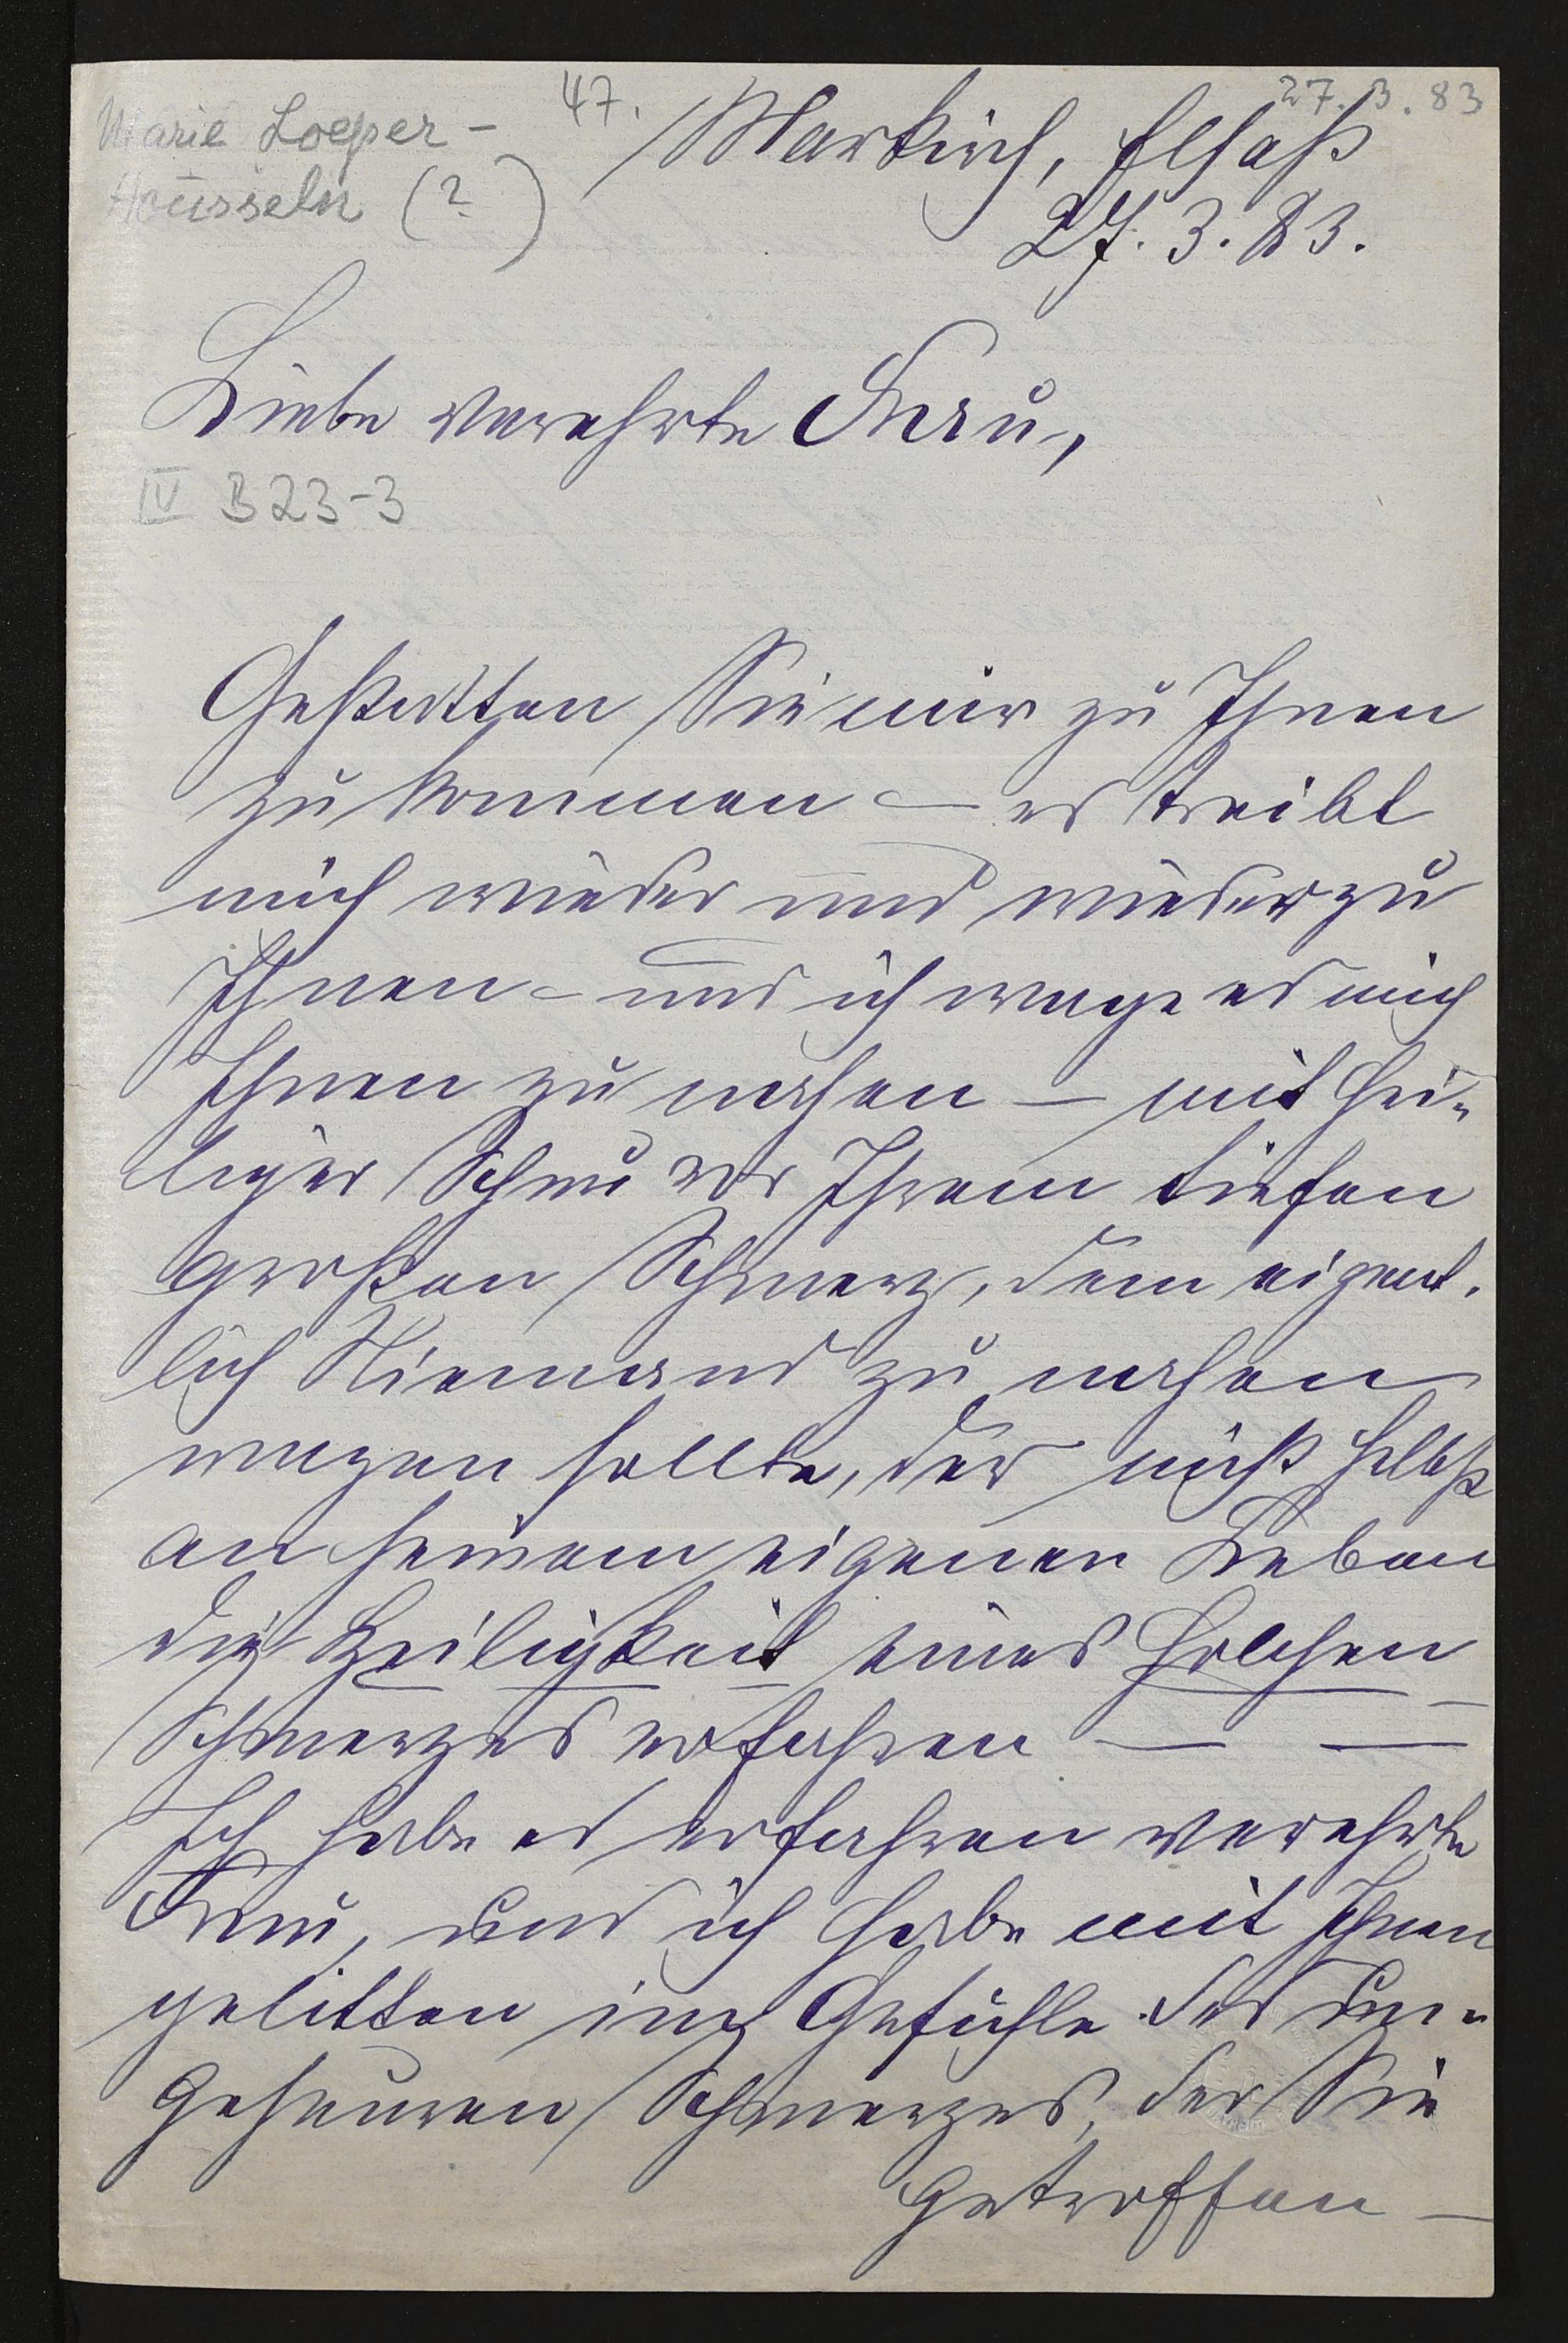 Marie Loeper-
Housseln (?)
47.
27. 3. 83
Markirch, Elsaß
27. 3. 83.
Liebe verehrte Frau,
IV B23-3
Gestatten Sie mir zu Ihnen
zu kommen – es treibt
mich wieder und wieder zu
Ihnen – und ich wage es mich
Ihnen zu nahen – mit hei-
liger Scheu vor Ihrem tiefen
großen Schmerz, dem eigent-
lich Niemand zu nahen
wagen sollte, der nicht selbst
an seinem eigenen Leben
die Heiligkeit eines solchen
Schmerzes erfahren – –
Ich habe es erfahren verehrte
Frau, und ich habe mit Ihnen
gelitten im Gefühle des un-
geheuren Schmerzes, der Sie
getroffen –